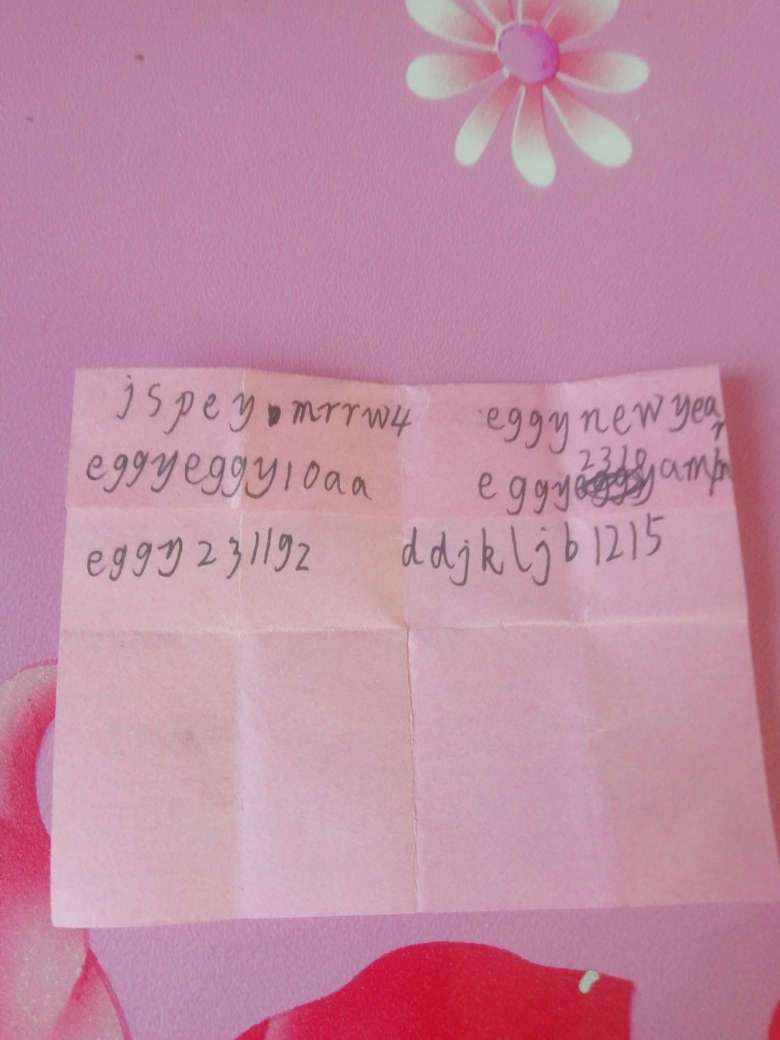 jspey.mrrw4 eggynewyear
eggyeggy10aa eggy2318amp
eggy231192 ddjkljb1215